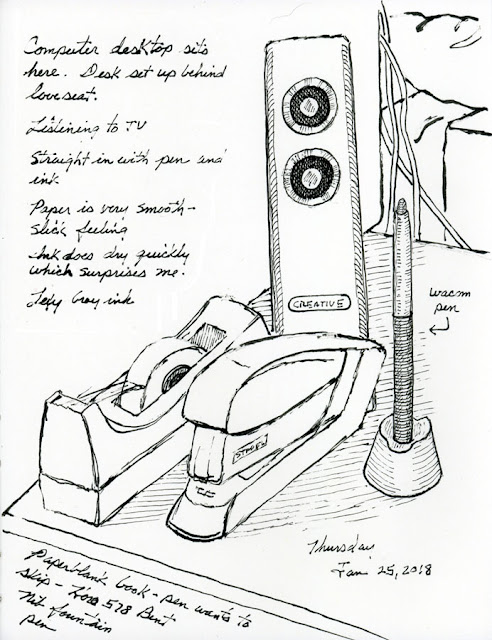 Computer desktop sits
here. Desk set up behind
love seat.
Listening to TV
Straight in with pen and
ink
Paper is very smooth-
slick feeling
Ink does dry quickly
which surprises me.
Lexy Gray ink
CREATIVE
wacom
pen
Thursday
Jan 25, 2018
Paperblank book - pen wants to
skip - 578 Bent
Nib fountain
pen